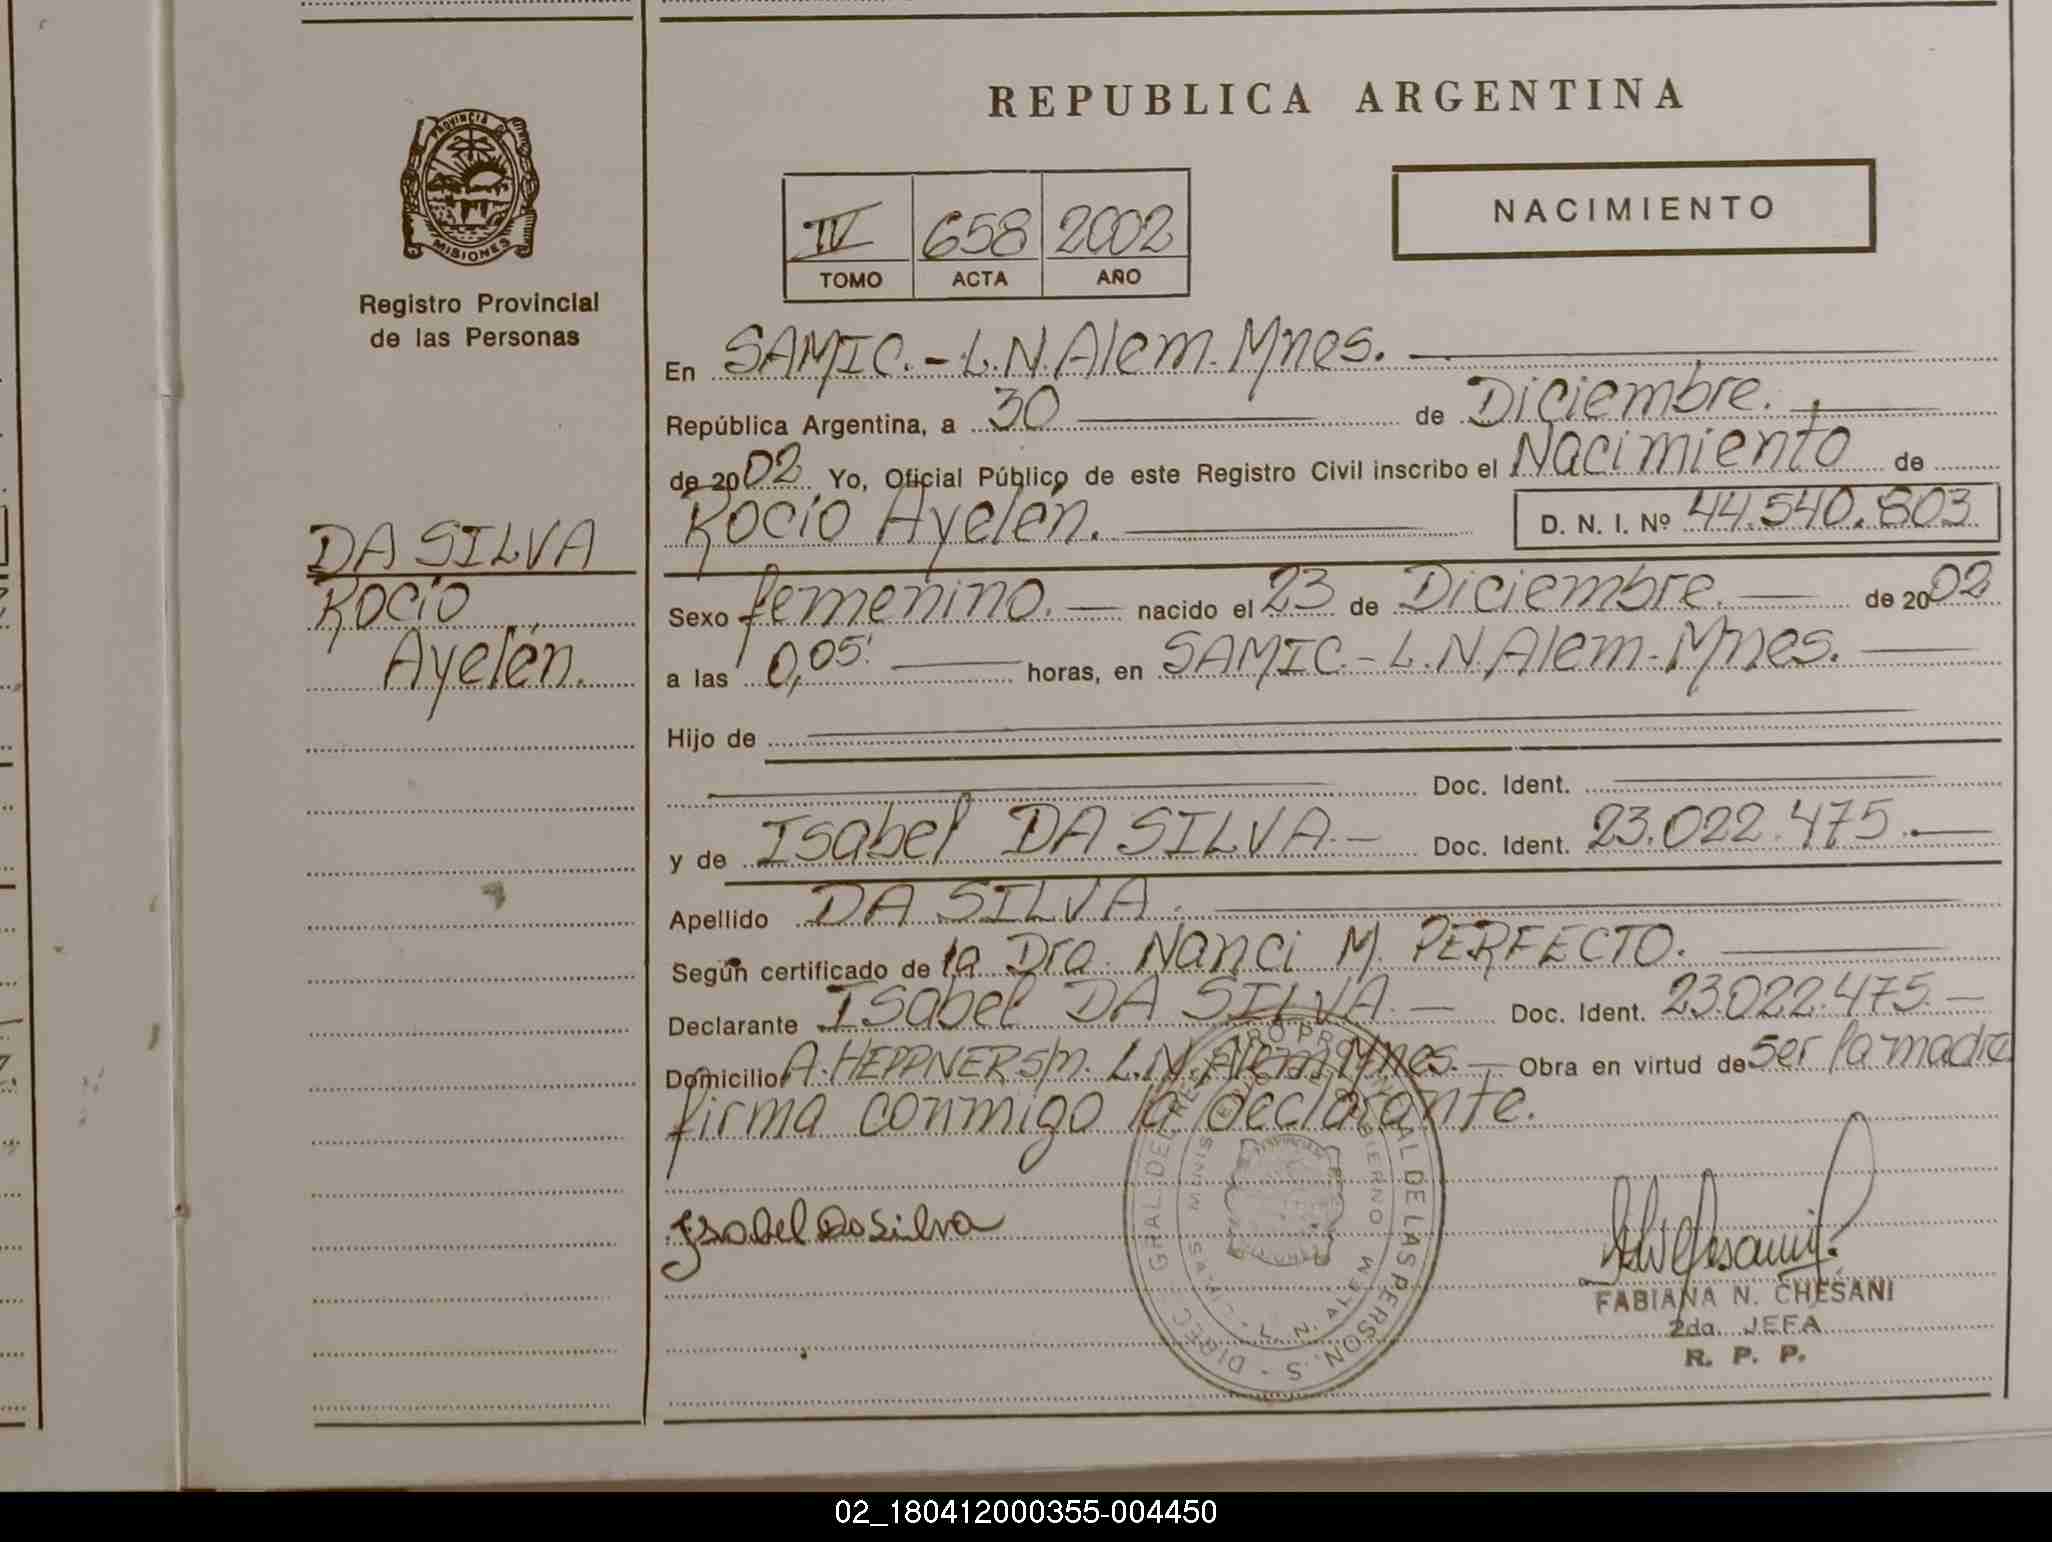 REPUBLICA ARGENTINA
PROVINCIA DE
MISIONES
Registro Provincial
de las Personas
IV 658 2002
TOMO ACTA AÑO
NACIMIENTO
En SAMIC.-L.N.Alem-Mnes.
República Argentina, a 30 de Diciembre.
de 2002 Yo, Oficial Público de este Registro Civil inscribo el Nacimiento de
Rocío Ayelén. D. N. I. Nº 44.540.803
DA SILVA
Rocío
Ayelén.
Sexo femenino. nacido el 23 de Diciembre. de 2002
a las 0,05' horas, en SAMIC.-L.N.Alem-Mnes.
Hijo de
Doc. Ident.
y de Isabel DA SILVA.- Doc. Ident. 23.022.475.
Apellido DA SILVA.
Según certificado de la Dra. Nanci M. PERFECTO.
Declarante Isabel DA SILVA.- Doc. Ident. 23.022.475.-
Domicilio A. HEPPNER s/n. L.N.Alem Mnes. Obra en virtud de ser la madre
firma conmigo la declarante.
Isabel Da Silva
FABIANA N. CHESANI
2da. JEFA
R. P. P.
02_180412000355-004450